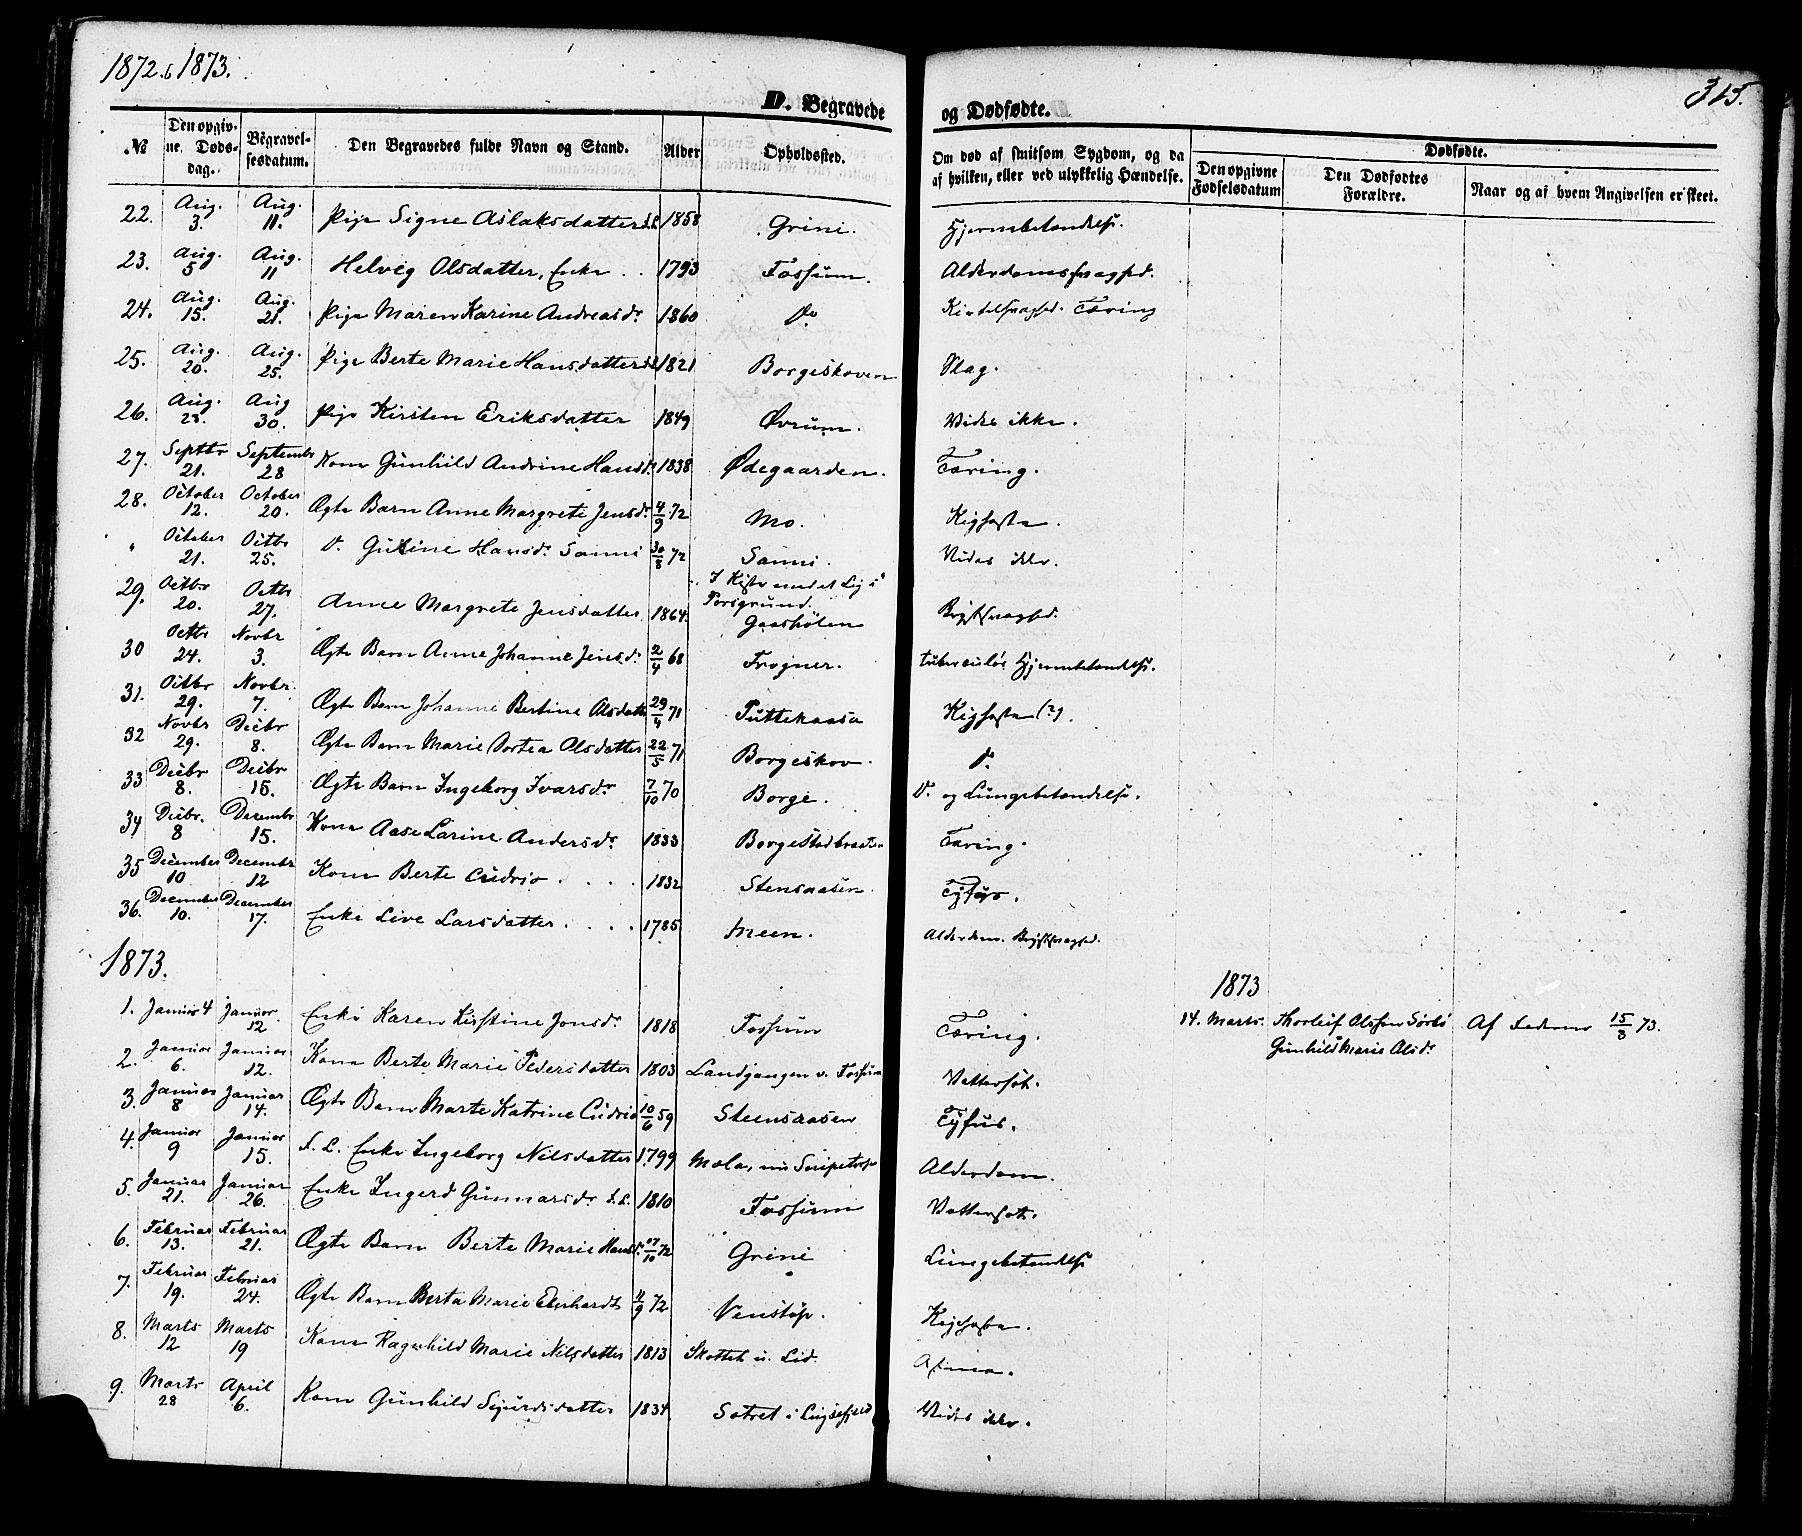 1872. & 1873.
315.
D. Begravede og Dødfødte.
№ Den opgivne Dødsdag. Begravelsesdatum. Den Begravedes fulde Navn og Stand. Alder Opholdssted. Om død af smitsom Sygdom, og da af hvilken, eller ved ulykkelig Hændelse.
Dødfødte.
Den opgivne Fødselsdatum Den Dødfødtes Forældre. Naar og af hvem Angivelsen er skeet.
22. Aug. 3. Aug. 11. Pige Signe Aslaksdatter 1858 Grini. Hjernebetændelse.
23. Aug. 5 Aug. 11 Helvig Olsdatter, Enke 1793 Fossum. Alderdomssvaghed.
24. Aug. 15. Aug. 21. Pige Maren Karine Andreasdr 1860 Do Kirtelsvaghed. Tæring
25. Aug. 20. Aug. 25. Pige Berte Marie Hansdatter 1821 Borgeskoven Slag.
26. Aug. 23. Aug 30. Pige Kirsten Eriksdatter 1849 Øvrum. Vides ikke.
27. Septbr 21. Septembr 28 Kone Gunhild Andrine Hansdr 1838 Ødegaarden. Tæring.
28. October 12. October 20. Ægte Barn Anne Margrete Jensdr 4/9 72 Mo. Kighoste.
" October 21. Octbr 25. D. Guline Hansdr Sanni 30/8 72 Sanni. Vides ikke.
29. Octbr 20. Octbr 27. Anne Margrete Jensdatter 1864. I Kiste med et Lig i Porsgrund. Gaasholen Brystsvaghed.
30 Octbr 24. Novbr 3. Ægte Barn Anne Johanne Jensdr 2/4 68 Frogner. tuberculøs Hjernebetændelse.
31. Octbr 29. Novbr. 7. Ægte Barn Johanne Bertine Olsdatter 29/4 71 Puttekaasa Kighoste (?).
32 Novbr 29. Decbr 8. Ægte Barn Marie Dortea Olsdatter 22/5 71 Borgeskov. D.
33 Decbr 8. Decbr 15. Ægte Barn Ingeborg Ivarsdr 7/10 70 Borge. D. og Lungebetændelse.
34 Decbr. 8 Decembr 15. Kone Aase Larine Andersdr 1833 Borgestadbraaten Tæring.
35 December 10 Decembr 12 Kone Berte Cudrio 1832 Stensaasen. Tyfus.
36. December 10. December 17. Enke Live Larsdatter 1785 Meen. Alderdom. Brystsvaghed.
1873.
1873
1. Januar 4 Januar 12. Enke Karen Kirstine Jonsdr 1818 Fossum Tæring. 14. Marts. Thorleif Olssen Sørbø Gunhild Marie Olsdr Af Faderen 15/3 73.
2. Januar 6. Januar 12. Kone Berte Marie Pedersdatter 1803 Landgangen v. Fossum Vattersot.
3. Januar 8 Januar 14. Ægte Barn Marte Katrine Cudrio 10/6 59 Steensaasen Tyfus.
4. Januar 9 Januar 15. F. L. Enke Ingeborg Nilsdatter 1799 Mæla, Alderdom.
5. Januar 21. Januar 26. Enke Ingerd Gunnarsdr F. L. 1810 Fossum Vattersot.
6. Februar 13. Februar 21. Ægte Barn Berte Marie Hansdr /10 72 Grini Lungebetændelse
7. Februar 19. Februar 24. Ægte Barn Berta Marie Eberhardt 4/9 72 Venstøp. Kighoste.
8. Marts 12 Marts 19 Kone Ragnhild Marie Nilsdatter 1813 Skottet u. Lid. Astma.
9. Marts 28 April 6. Kone Gunhild Sigurdsdatter 1834 Sætret i Luksefjeld Vides ikke.